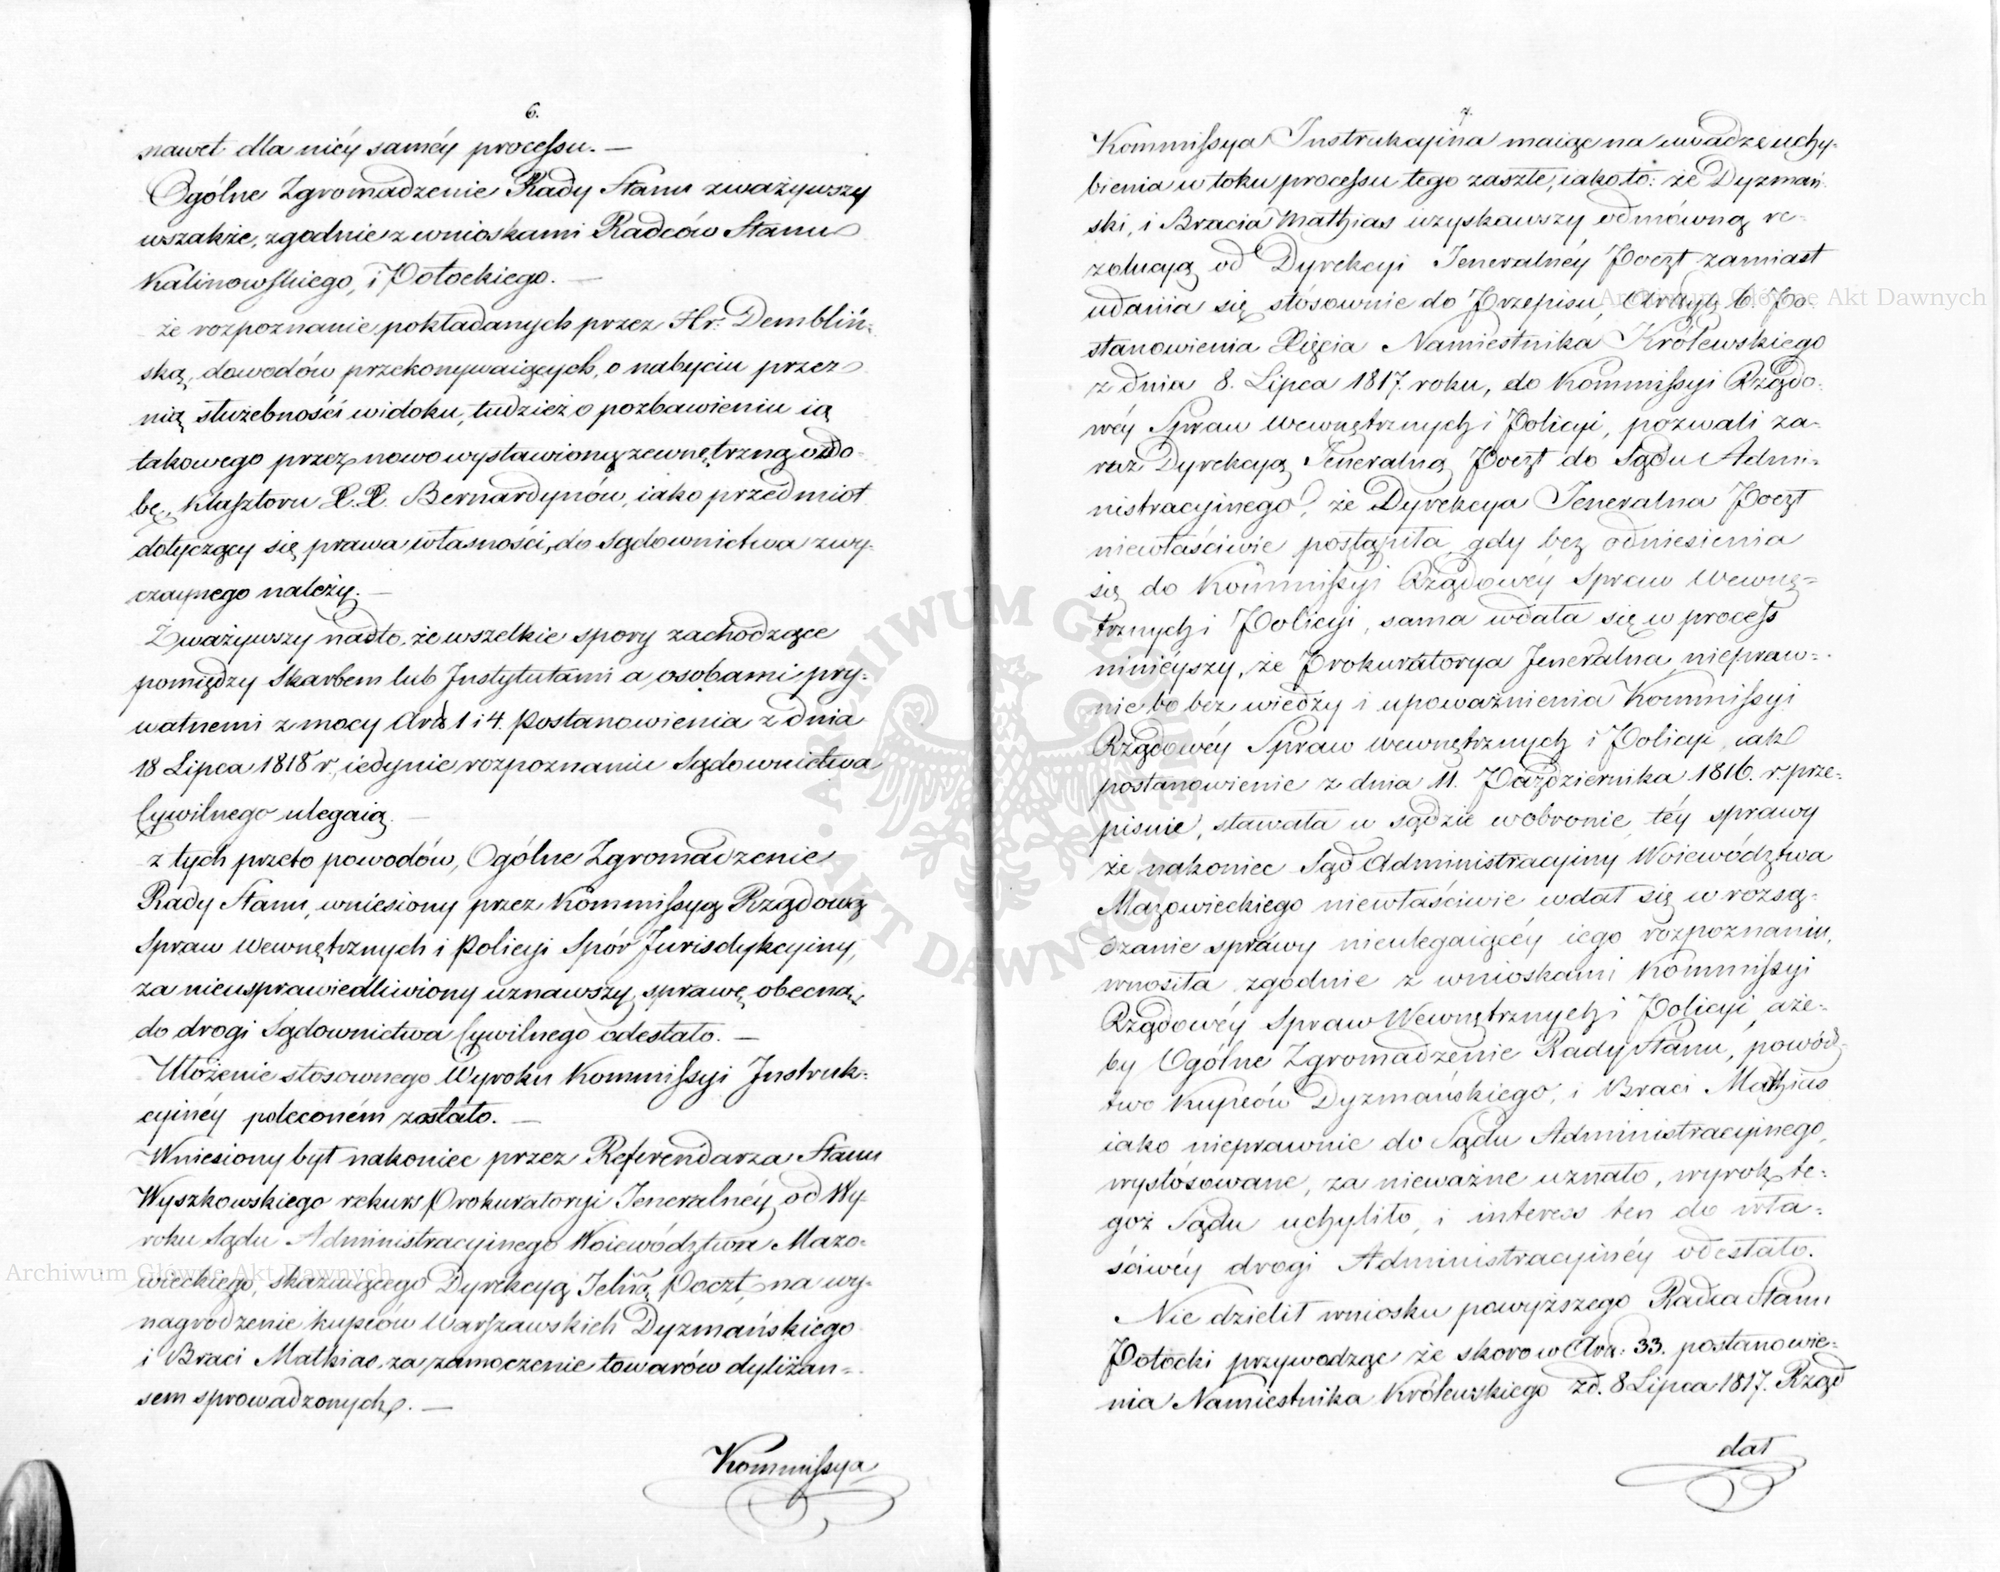 6.
nawet dla niéy saméy processu. —
Ogólne Zgromadzenie Rady Stanu zważywszy
wszakże, zgodnie z wnioskami Radców Stanu
Kalinowskiego, i Potockiego. —
że rozpoznanie pokładanych przez Hr: Demblíń-
ską, dowodów przekonywaiących, o nabyciu przez
nią służebności widoku, tudzież o pozbawieniu ią
takowego przez nowo wystawioną zewnętrzną ozdo-
bę, Klasztoru X.X. Bernardynów, iako przedmiot
dotyczący się prawa własności, do Sądownictwa zwy-
czaynego należy. —
Zważywszy nadto, że wszelkie spory zachodzące
pomiędzy Skarbem lub Instytutami a osobami pry-
watnemi z mocy Art: 1 i 4. Postanowienia z dnia
18 Lipca 1818 r, iedynie rozpoznaniu Sądownictwa
Cywilnego ulegaią. —
z tych przeto powodów, Ogólne Zgromadzenie
Rady Stanu, wniesiony przez Kommissyą Rządową
Spraw Wewnętrznych i Policyi Spór Jurisdykcyiny,
za nieusprawiedliwiony uznawszy, sprawę obecną,
do drogi Sądownictwa Cywilnego odesłało. —
Ułożenie stosownego Wyroku Kommissyi Instruk-
cyinéy poleconém zostało. —
Wniesiony był nakoniec przez Referendarza Stanu
Wyszkowskiego rekurs Prokuratoryi Jeneralnéy, od Wy-
roku Sądu Administracyinego Woiewództwa Mazo-
wieckiego, skazuiącego Dyrekcyą Jelną Poczt, na wy-
nagrodzenie kupców Warszawskich Dyzmańskiego
i Braci Mathias, za zamoczenie towarów dyliżan-
sem sprowadzonych. —
Kommissya
7.
Kommissya Instrukcyina maiąc na uwadze uchy-
bienia w toku processu tego zaszłe, iako to: że Dyzmań-
ski, i Bracia Mathias uzyskawszy odmówną re-
zolucyą od Dyrekcyi Jeneralnéy Poczt zamiast
udania się stósownie do Przepisu, Artyk 6. Po-
stanowienia Xięcia Namiestnika Królewskiego
z dnia 8. Lipca 1817. roku, do Kommissyi Rządo-
wéy Spraw Wewnętrznych i Policyi, pozwali za-
raz Dyrekcyą Jeneralną Poczt do Sądu Admi-
nistracyinego, że Dyrekcya Jeneralna Poczt
niewłaściwie postąpiła gdy bez odniesienia
się do Kommissyi Rządowéy Spraw Wewnę-
trznych i Policyi, sama wdała się w process
ninieyszy, że Prokuratorya Jeneralna niepraw-
nie bo bez wiedzy i upoważnienia Kommissyi
Rządowéy Spraw Wewnętrznych i Policyi, iak
postanowienie z dnia 11. Października 1816. r. prze-
pisuie, stawała w sądzie w obronie téy sprawy
że nakoniec Sąd Administracyiny Woiewództwa
Mazowieckiego niewłaściwie wdał się w rozsą-
dzanie sprawy nieulegaiącéy iego rozpoznaniu,
wnosiła zgodnie z wnioskami Kommissyi
Rządowéy Spraw Wewnętrznych i Policyi, aże-
by Ogólne Zgromadzenie Rady Stanu, powódz-
two Kupców Dyzmańskiego, i Braci Mathias
iako nieprawnie do Sądu Administracyinego,
wystósowane, za nieważne uznało, wyrok te-
goż Sądu uchyliło, i interess ten do wła-
ściwéy drogi Administracyinéy odesłało.
Nie dzielił wniosku powyższego Radca Stanu
Potocki przywodząc że skoro w Art: 33. postanowie-
nia Namiestnika Królewskiego z d. 8 Lipca 1817. Rząd
dał
Archiwum Główne Akt Dawnych
Archiwum Główne Akt Dawnych
ARCHIWUM GŁÓWNE AKT DAWNYCH